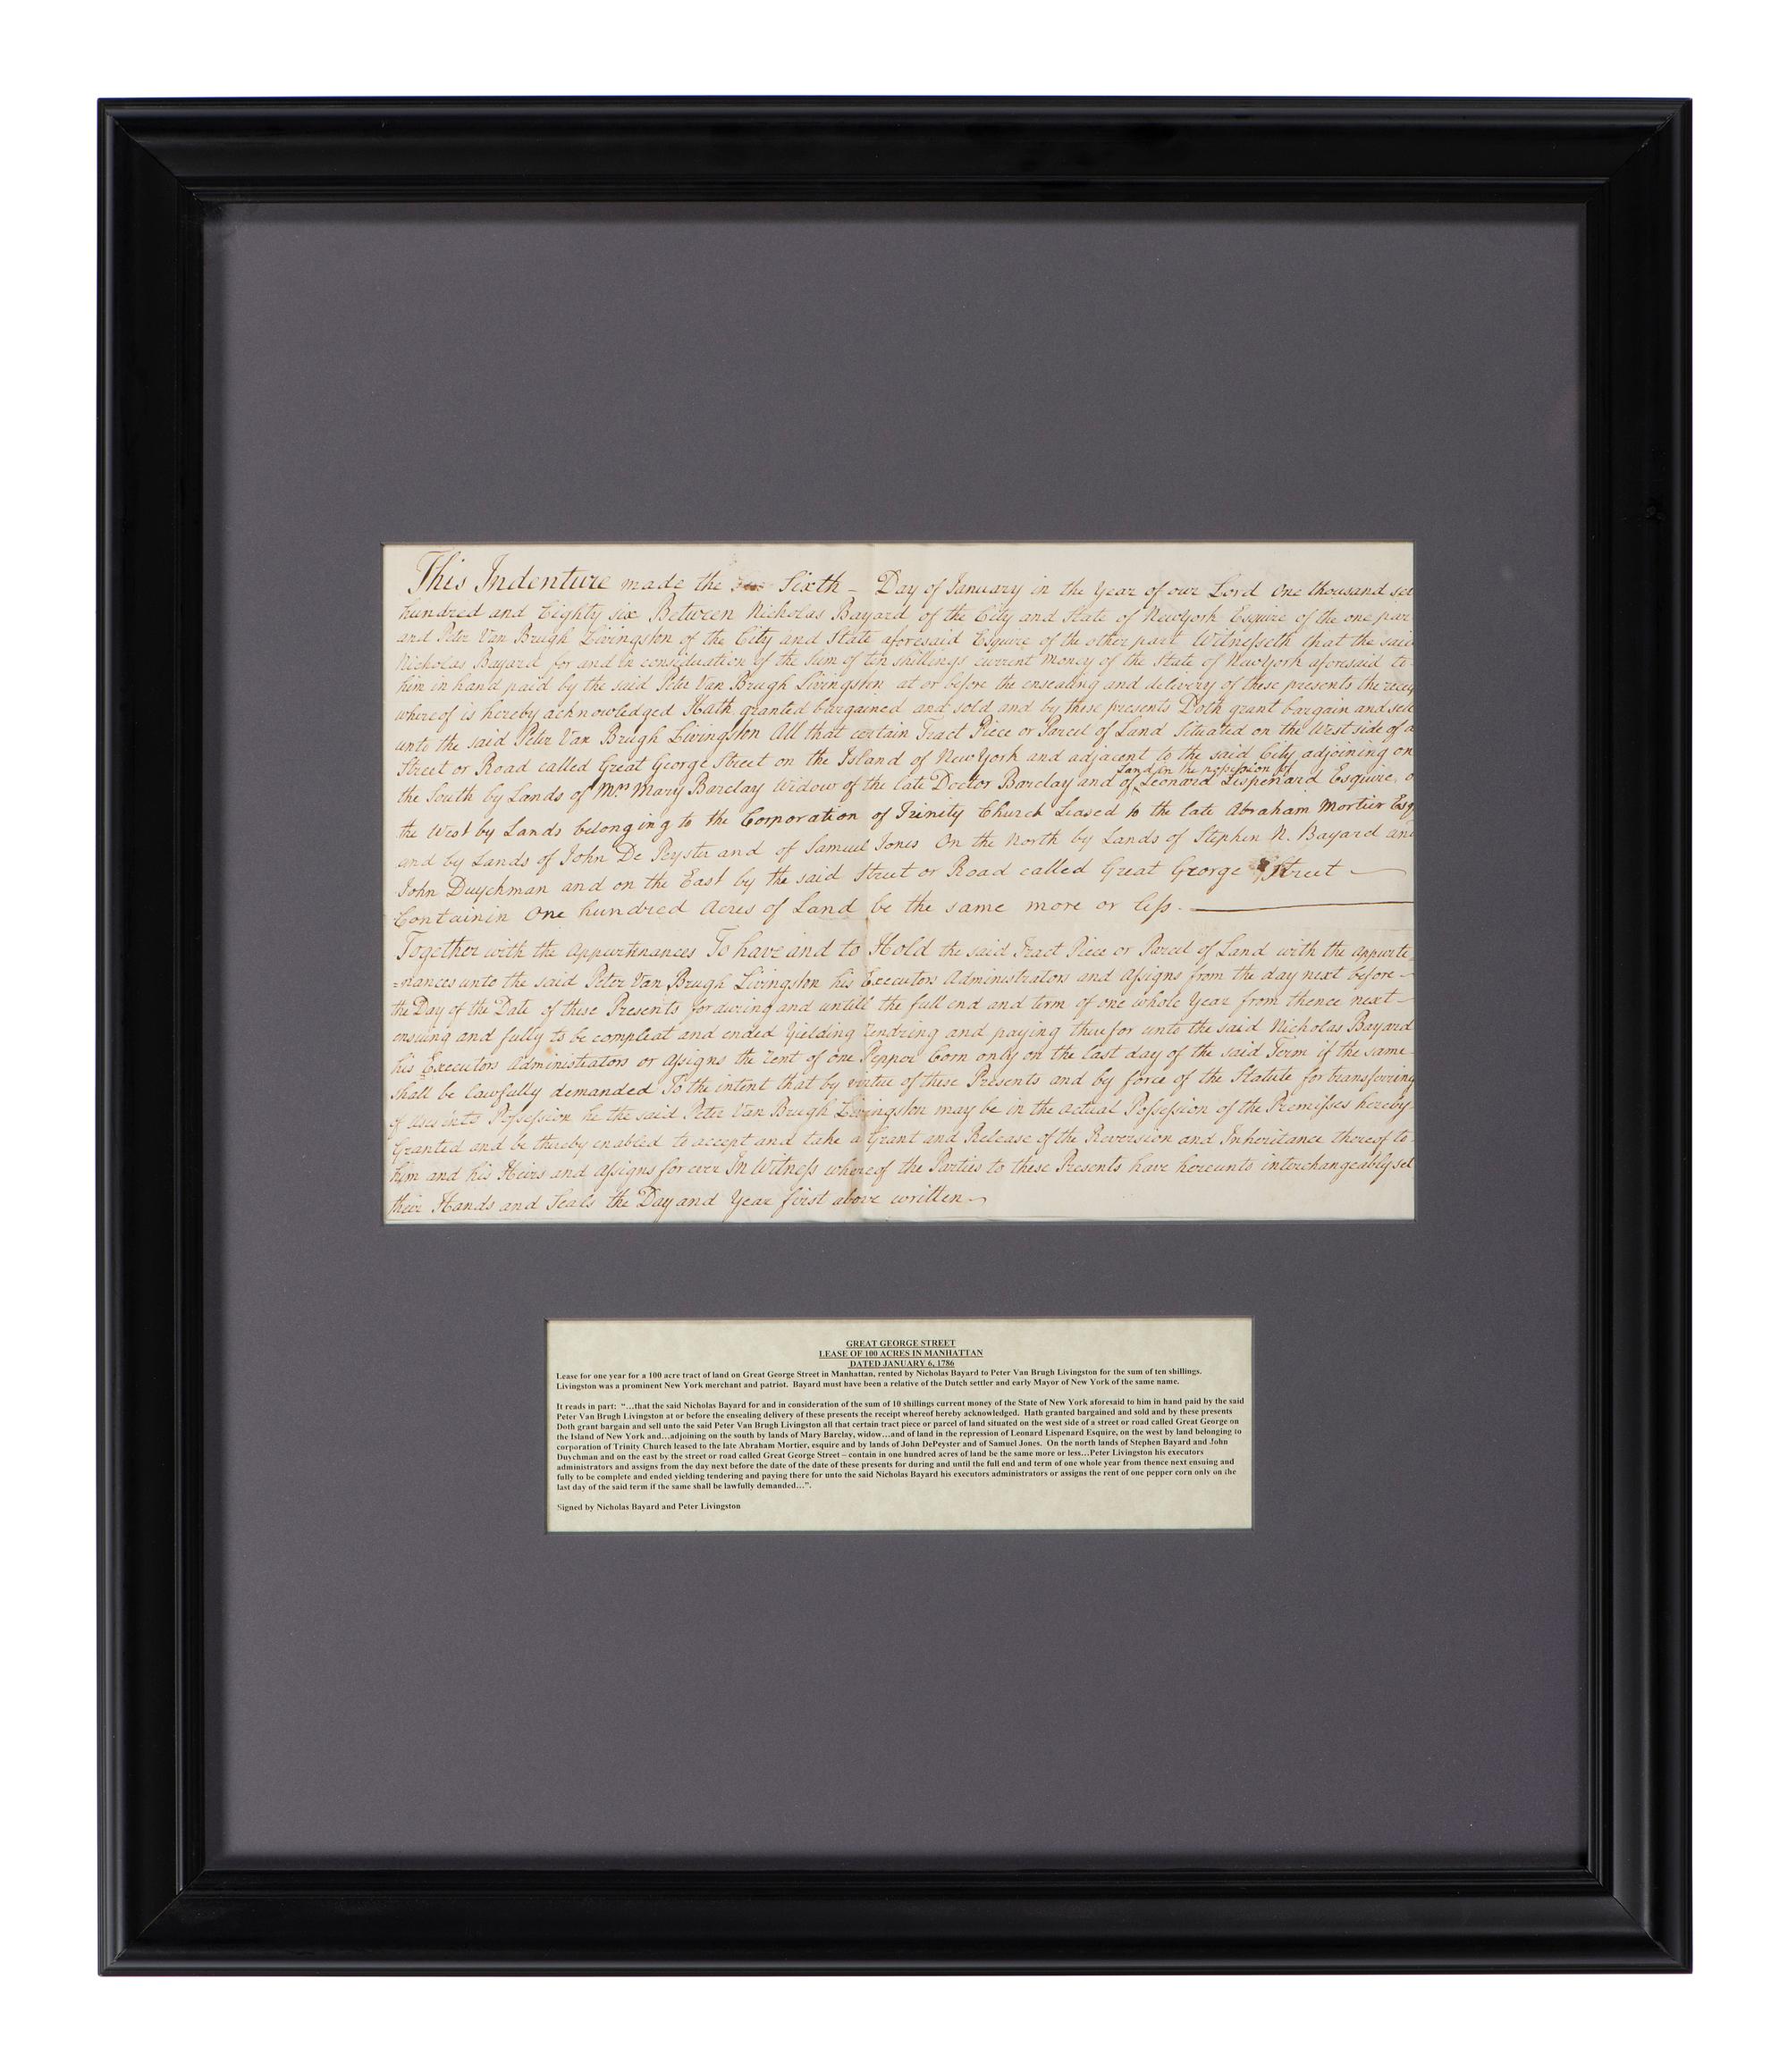 This Indenture made the Sixth – Day of January in the Year of our Lord One thousand sev
hundred and Eighty six Between Nicholas Bayard of the City and State of NewYork Esquire of the one par
and Peter Van Brugh Livingston of the City and State aforesaid Esquire of the other part Witnesseth that the said
Nicholas Bayard for and in consideration of the Sum of ten shillings current money of the State of NewYork aforesaid to
him in hand paid by the said Peter Van Brugh Livingston at or before the ensealing and delivery of these presents the recei
whereof is hereby acknowledged Hath granted bargained and sold and by these presents Doth grant bargain and sell
unto the said Peter Van Brugh Livingston All that certain Tract Piece or Parcel of Land Situated on the West side of a
Street or Road called Great George Street on the Island of NewYork and adjacent to the said City adjoining on
Land in the possession of
the South by Lands of Mrs Mary Barclay Widow of the late Doctor Barclay and of Leonard Lispenard Esquire, o
the West by Lands belonging to the Corporation of Trinity Church Leased to the late Abraham Mortier Esq
and by Lands of John De Peyster and of Samuel Jones On the North by Lands of Stephen N. Bayard and
John Duychman and on the East by the said Street or Road called Great George Street
Containin One hundred Acres of Land be the same more or less.
Together with the Appurtenances To have and to Hold the said Tract Piece or Parcel of Land with the Appurte
=nances unto the said Peter Van Brugh Livingston his Executors Administrators and Assigns from the day next before
the Day of the Date of these Presents for during and untill the full end and term of one whole Year from thence next
ensuing and fully to be compleat and ended Yielding rendring and paying therefor unto the said Nicholas Bayard
his Executors Administrators or Assigns the rent of one Pepper Corn only on the last day of the said Term if the same
shall be lawfully demanded To the intent that by virtue of these Presents and by force of the Statute for transferring
of uses into Possession he the said Peter Van Brugh Livingston may be in the actual Possession of the Premisses hereby
Granted and be thereby enabled to accept and take a Grant and Release of the Reversion and Inheritance thereof to
him and his Heirs and Assigns for ever In Witness whereof the Parties to these Presents have hereunto interchangeably set
their Hands and Seals the Day and Year first above written
GREAT GEORGE STREET
LEASE OF 100 ACRES IN MANHATTAN
DATED JANUARY 6, 1786
Lease for one year for a 100 acre tract of land on Great George Street in Manhattan, rented by Nicholas Bayard to Peter Van Brugh Livingston for the sum of ten shillings.
Livingston was a prominent New York merchant and patriot. Bayard must have been a relative of the Dutch settler and early Mayor of New York of the same name.
It reads in part: “…that the said Nicholas Bayard for and in consideration of the sum of 10 shillings current money of the State of New York aforesaid to him in hand paid by the said
Peter Van Brugh Livingston at or before the ensealing delivery of these presents the receipt whereof hereby acknowledged. Hath granted bargained and sold and by these presents
Doth grant bargain and sell unto the said Peter Van Brugh Livingston all that certain tract piece or parcel of land situated on the west side of a street or road called Great George on
the Island of New York and…adjoining on the south by lands of Mary Barclay, widow…and of land in the repression of Leonard Lispenard Esquire, on the west by land belonging to
corporation of Trinity Church leased to the late Abraham Mortier, esquire and by lands of John DePeyster and of Samuel Jones. On the north lands of Stephen Bayard and John
Duychman and on the east by the street or road called Great George Street – contain in one hundred acres of land be the same more or less…Peter Livingston his executors
administrators and assigns from the day next before the date of the date of these presents for during and until the full end and term of one whole year from thence next ensuing and
fully to be complete and ended yielding tendering and paying there for unto the said Nicholas Bayard his executors administrators or assigns the rent of one pepper corn only on the
last day of the said term if the same shall be lawfully demanded…”.
Signed by Nicholas Bayard and Peter Livingston